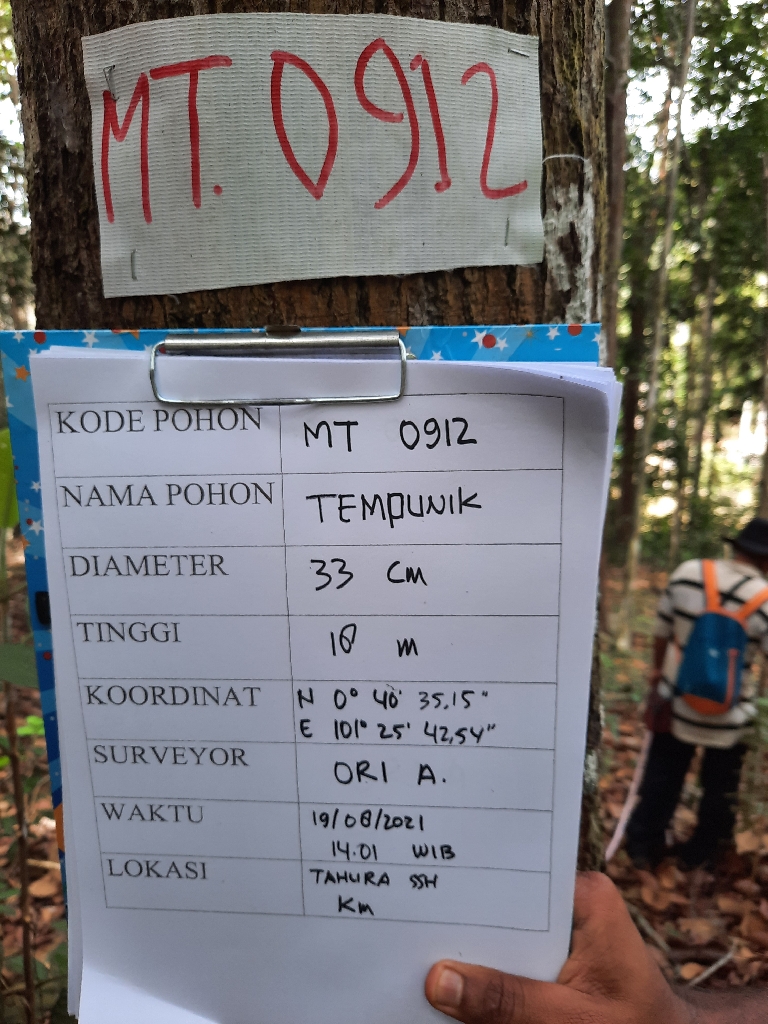 MT. 0912
KODE POHON MT 0912
NAMA POHON TEMPUNIK
DIAMETER 33 cm
TINGGI 18 m
KOORDINAT N 0° 40' 35,15"
E 101° 25' 42,54"
SURVEYOR ORI A.
WAKTU 19/08/2021
14.01 WIB
LOKASI TAHURA SSH
Km